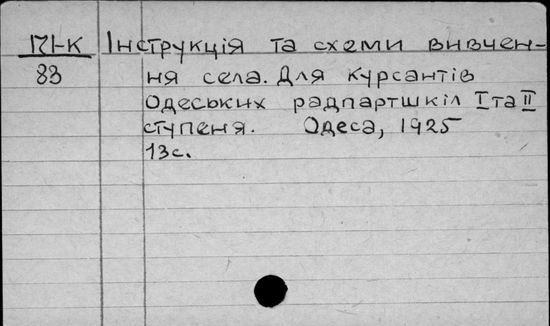 171-К Інструкція та схеми вивчен-
83 ня села. Для курсантів
Одеських радпартшкіл I та II
ступеня. Одеса, 1925
13с.